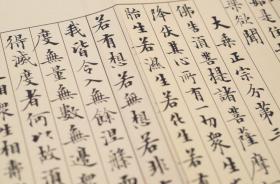 樂欲聞
大乘正宗分第三
佛告須菩提諸菩薩摩
降伏其心所有一切眾生
胎生若濕生若化生若
若有想若無想若非
我皆令入無餘涅槃
度無量無數無邊眾
得滅度者何以故須
相眾生相壽